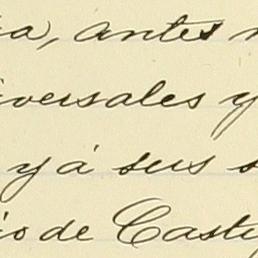 a, antes
iversales y
y á sus s
io de Casti